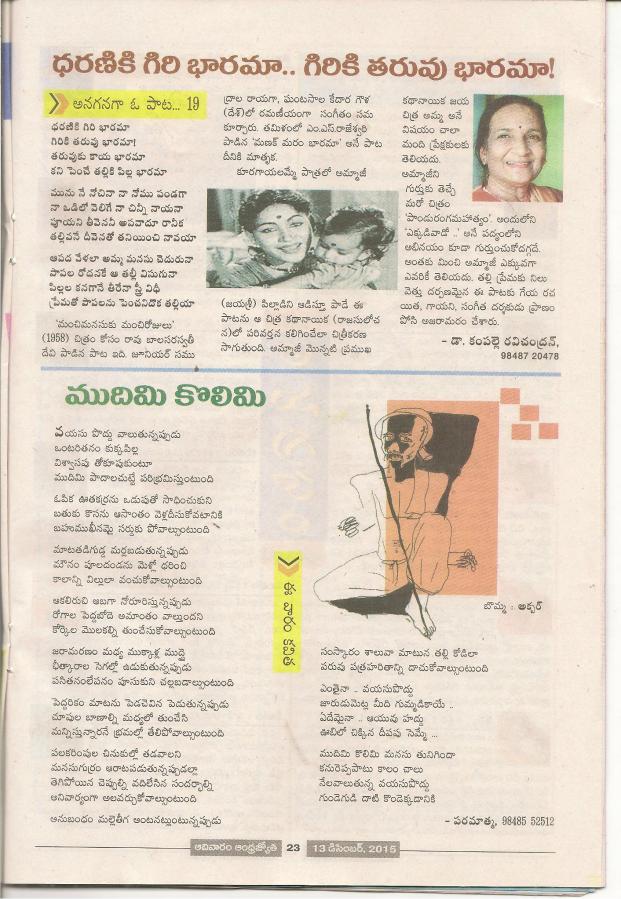 ధరణికి గిరి భారమా.. గిరికి తరువు భారమా!
అనగనగా ఓ పాట... 19
ధరణికి గిరి భారమా
గిరికి తరువు భారమా!
తరువుకు కాయ భారమా
కని పెంచే తల్లికి పిల్ల భారమా
మును నే నోచినా నా నోము పండగా
నా ఒడిలో వెలిగే నా చిన్ని నాయనా
పూయని తీవెననీ అపవాదూ రానిక
తల్లివనే దీవెనతో తనియించి నావయా
ఆపద వేళలా అమ్మ మనసు చెదురునా
పాపల రోదనకే ఆ తల్లీ విసుగునా
పిల్లల కనగానే తీరేనా స్త్రీ విధీ
ప్రేమతో పాపలను పెంచనిదొక తల్లియా
'మంచిమనసుకు మంచిరోజులు'
(1958) చిత్రం కోసం రావు బాలసరస్వతీ
దేవి పాడిన పాట ఇది. జూనియర్ సము
ద్రాల రాయగా, ఘంటసాల కేదార గౌళ
(దేశ్)లో రమణీయంగా సంగీతం సమ
కూర్చారు. తమిళంలో ఎం.ఎస్.రాజేశ్వరి
పాడిన 'మణక్ మరం భారమా' అనే పాట
దీనికి మాతృక.
కూరగాయలమ్మే పాత్రలో అమ్మాజీ
(జయశ్రీ) పిల్లాడిని ఆడిస్తూ పాడే ఈ
పాటను ఆ చిత్ర కథానాయిక (రాజసులోచ
న)లో పరివర్తన కలిగించేలా చిత్రీకరణ
సాగుతుంది. అమ్మాజీ మొన్నటి ప్రముఖ
కథానాయిక జయ
చిత్ర అమ్మ అనే
విషయం చాలా
మంది ప్రేక్షకులకు
తెలియదు.
అమ్మాజీని
గుర్తుకు తెచ్చే
మరో చిత్రం
'పాండురంగమహాత్యం'. అందులోని
'ఎక్కడివాడో ..' అనే పద్యంలోని
అభినయం కూడా గుర్తుంచుకోదగ్గదే.
అంతకు మించి అమ్మాజీ ఎక్కువగా
ఎవరికీ తెలియదు. తల్లి ప్రేమకు నిలు
వెత్తు దర్పణమైన ఈ పాటకు గేయ రచ
యిత, గాయని, సంగీత దర్శకుడు ప్రాణం
పోసి అజరామరం చేశారు.
- డా. కంపల్లె రవిచంద్రన్,
98487 20478
ముదిమి కొలిమి
వయసు పొద్దు వాలుతున్నప్పుడు
ఒంటరితనం కుక్కపిల్ల
విశ్వాసపు తోకూపుకుంటూ
ముదిమి పాదాలచుట్టే పరిభ్రమిస్తుంటుంది
ఓపిక ఊతకర్రను ఒడుపుతో సాధించుకుని
బతుకు కొసను ఆసాంతం వెళ్లదీసుకోవటానికి
బహుముఖీనమై సర్దుకు పోవాల్సుంటుంది
మాటతడిగుడ్డ మర్లబడుతున్నప్పుడు
మౌనం పూలదండను మెళ్లో ధరించి
కాలాన్ని విల్లులా వంచుకోవాల్సుంటుంది
ఆకలిరుచి ఆబగా నోరూరిస్తున్నప్పుడు
రోగాల పెద్దబోదె అమాంతం వాల్తుందని
కోర్కెల మొలకల్ని తుంచేసుకోవాల్సుంటుంది
జరామరణం మధ్య ముక్కాళ్ల ముద్దై
ఛీత్కారాల సెగల్లో ఉడుకుతున్నప్పుడు
పసితనంలేపనం పూసుకుని చల్లబడాల్సుంటుంది
పెద్దరికం మాటను పెడచెవిన పెడుతున్నప్పుడు
చూపుల బాణాల్ని మధ్యలో తుంచేసి
మన్నిస్తున్నారనే భ్రమల్లో తేలిపోవాల్సుంటుంది
పలకరింపుల చినుకుల్లో తడవాలని
మనసుగుర్రం ఆరాటపడుతున్నప్పుడల్లా
తెగిపోయిన చెప్పుల్ని వదిలేసిన సందర్భాల్ని
అనివార్యంగా అలవర్చుకోవాల్సుంటుంది
అనుబంధం మల్లెతీగ అంటనట్లుంటున్నప్పుడు
ఈ వారం కవిత
బొమ్మ : అక్బర్
సంస్కారం శాలువా మాటున తల్లి కోడిలా
పరువు పత్రహరితాన్ని దాచుకోవాల్సుంటుంది
ఎంతైనా .. వయసుపొద్దు
జారుడుమెట్ల మీది గుమ్మడికాయే ..
ఏదేమైనా .. ఆయువు హద్దు
ఊబిలో చిక్కిన దీపపు సెమ్మే ...
ముదిమి కొలిమి మనసు తునిగిందా
కనురెప్పపాటు కాలం చాలు
నేలవాలుతున్న వయసుపొద్దు
గుండెగుడి దాటి కొండెక్కడానికి
- పరమాత్మ, 98485 52512
ఆదివారం ఆంధ్రజ్యోతి 23 13 డిసెంబర్, 2015